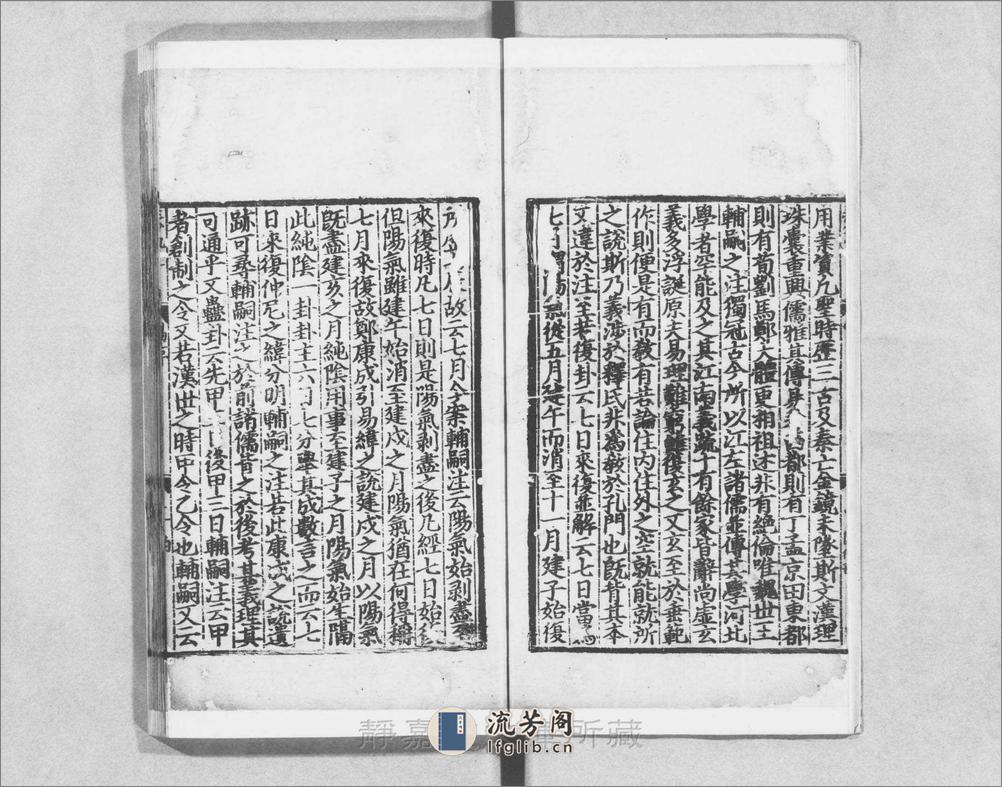 用業資凡聖時歷三古及秦亡金鏡未墜斯文漢理
珠囊重興儒雅其傳易 都則有丁孟京田東都
則有荀劉馬鄭大體更相祖述非有絕倫唯魏世王
輔嗣之注獨冠古今所以江左諸儒並傳其學河北
學者罕能及之其江南義疏十有餘家皆辭尚虛玄
義多浮誕原夫易理難窮雖復玄之又玄至於垂範
作則便是有而教有若論住內住外之空就能就所
之說斯乃義涉於釋氏非為教於孔門也既背其本
又違於注至若復卦云七日來復並解云七日當為
七月謂陽氣從五月建午而消至十一月建子始復
故云七月今案輔嗣注云陽氣始剝盡至
來復時凡七日則是陽氣剝盡之後凡經七日始復
但陽氣雖建午始消至建戌之月陽氣猶在何得稱
七月來復故鄭康成引易緯之說建戌之月以陽氣
既盡建亥之月純陰用事至建子之月陽氣始生隔
此純陰一卦卦主六日七分舉其成數言之而云七
日來復仲尼之緯分明輔嗣之注若此康成之說遺
跡可尋輔嗣注之於前諸儒背之於後考其義理其
可通乎又蠱卦云先甲 後甲三日輔嗣注云甲
者創制之令又若漢世之時甲令乙令也輔嗣又云
靜嘉 所藏
流芳阁
lfglib.cn